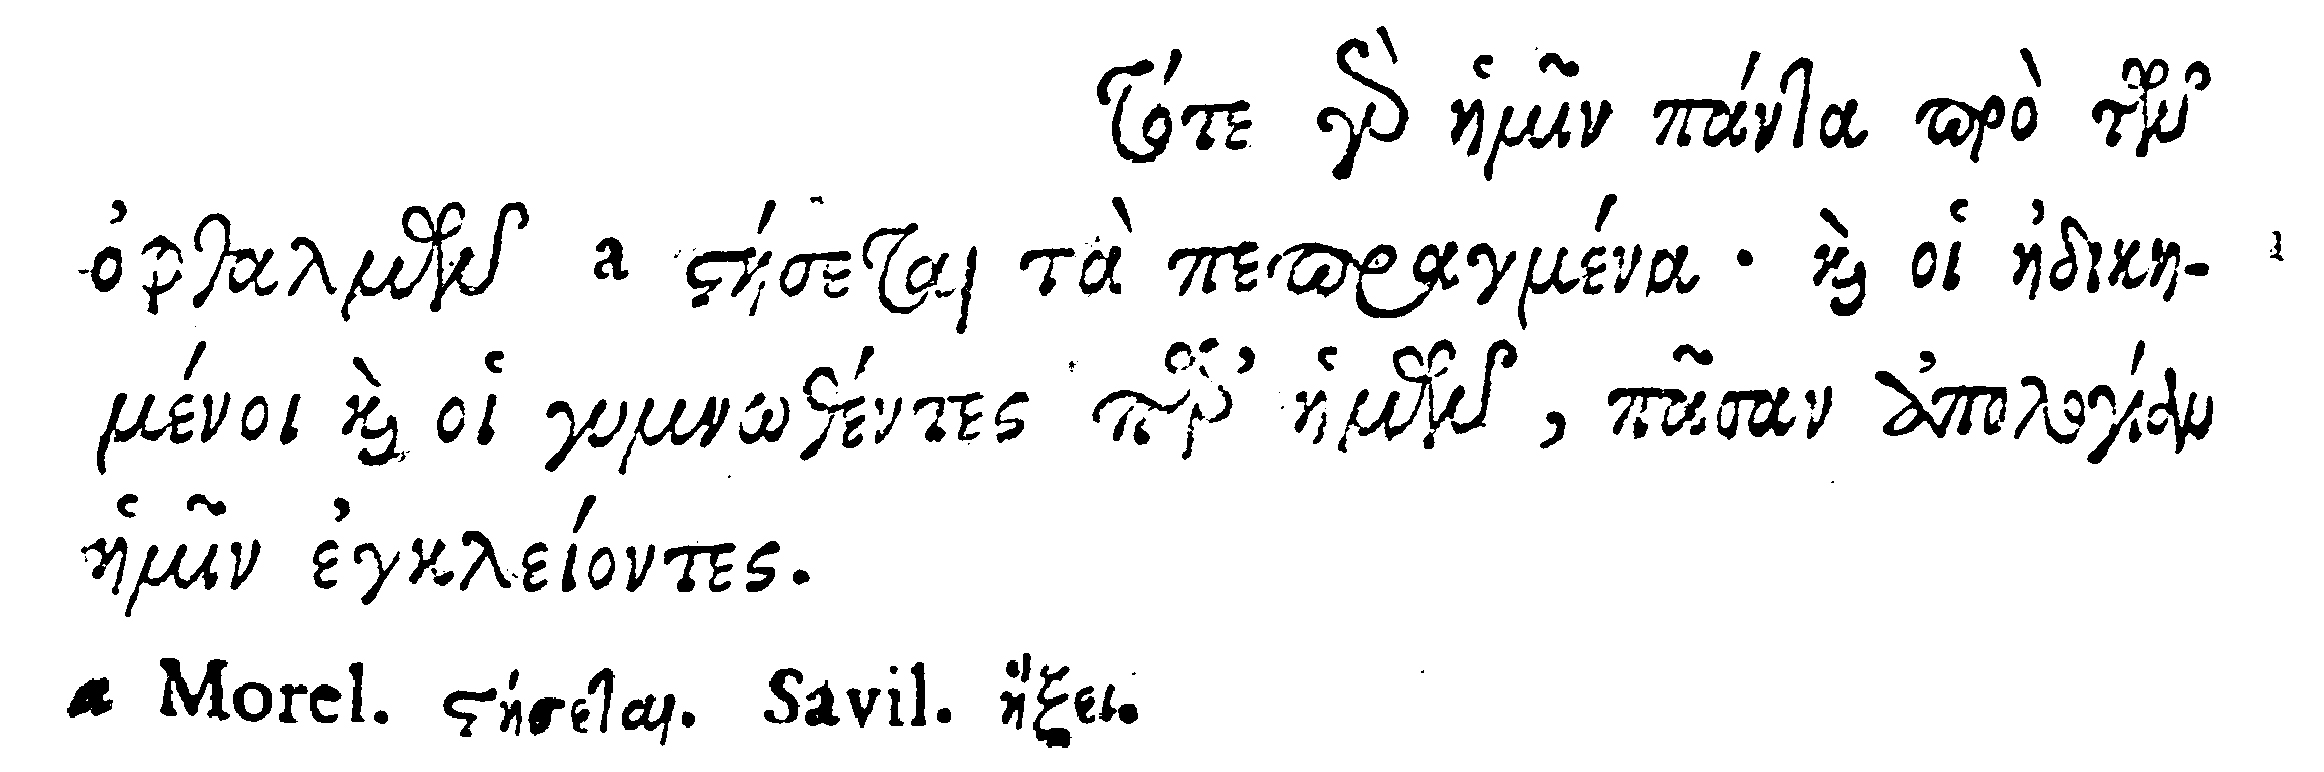 Τότε γὰρ ἡμῖν πάντα πρὸ τῶν
ὀφθαλμῶν a στήσεται τὰ πεπραγμένα · καὶ οἱ ἠδικη-
μένοι καὶ οἱ γυμνωθέντες παρ’ ἡμῶν, πᾶσαν ἀπολογίαν
ἡμῖν ἐγκλείοντες.
a Morel. στήσεται. Savil. ἥξει.